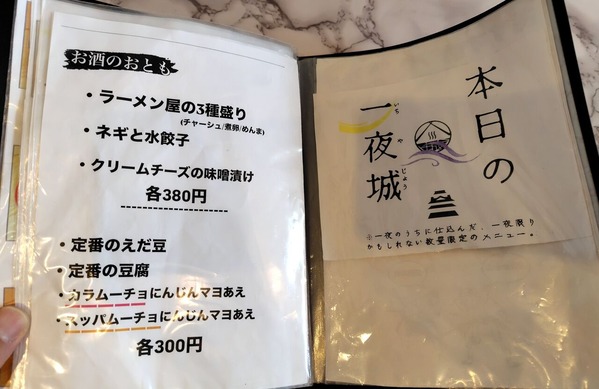 お酒のおとも
・ラーメン屋の3種盛り
(チャーシュ/煮卵/めんま)
・ネギと水餃子
・クリームチーズの味噌漬け
各380円
・定番のえだ豆
・定番の豆腐
・カラムーチョにんじんマヨあえ
・スッパムーチョにんじんマヨあえ
各300円
本日の
一夜城
いちやじょう
※一夜のうちに仕込んだ、一夜限り
かもしれない数量限定のメニュー。